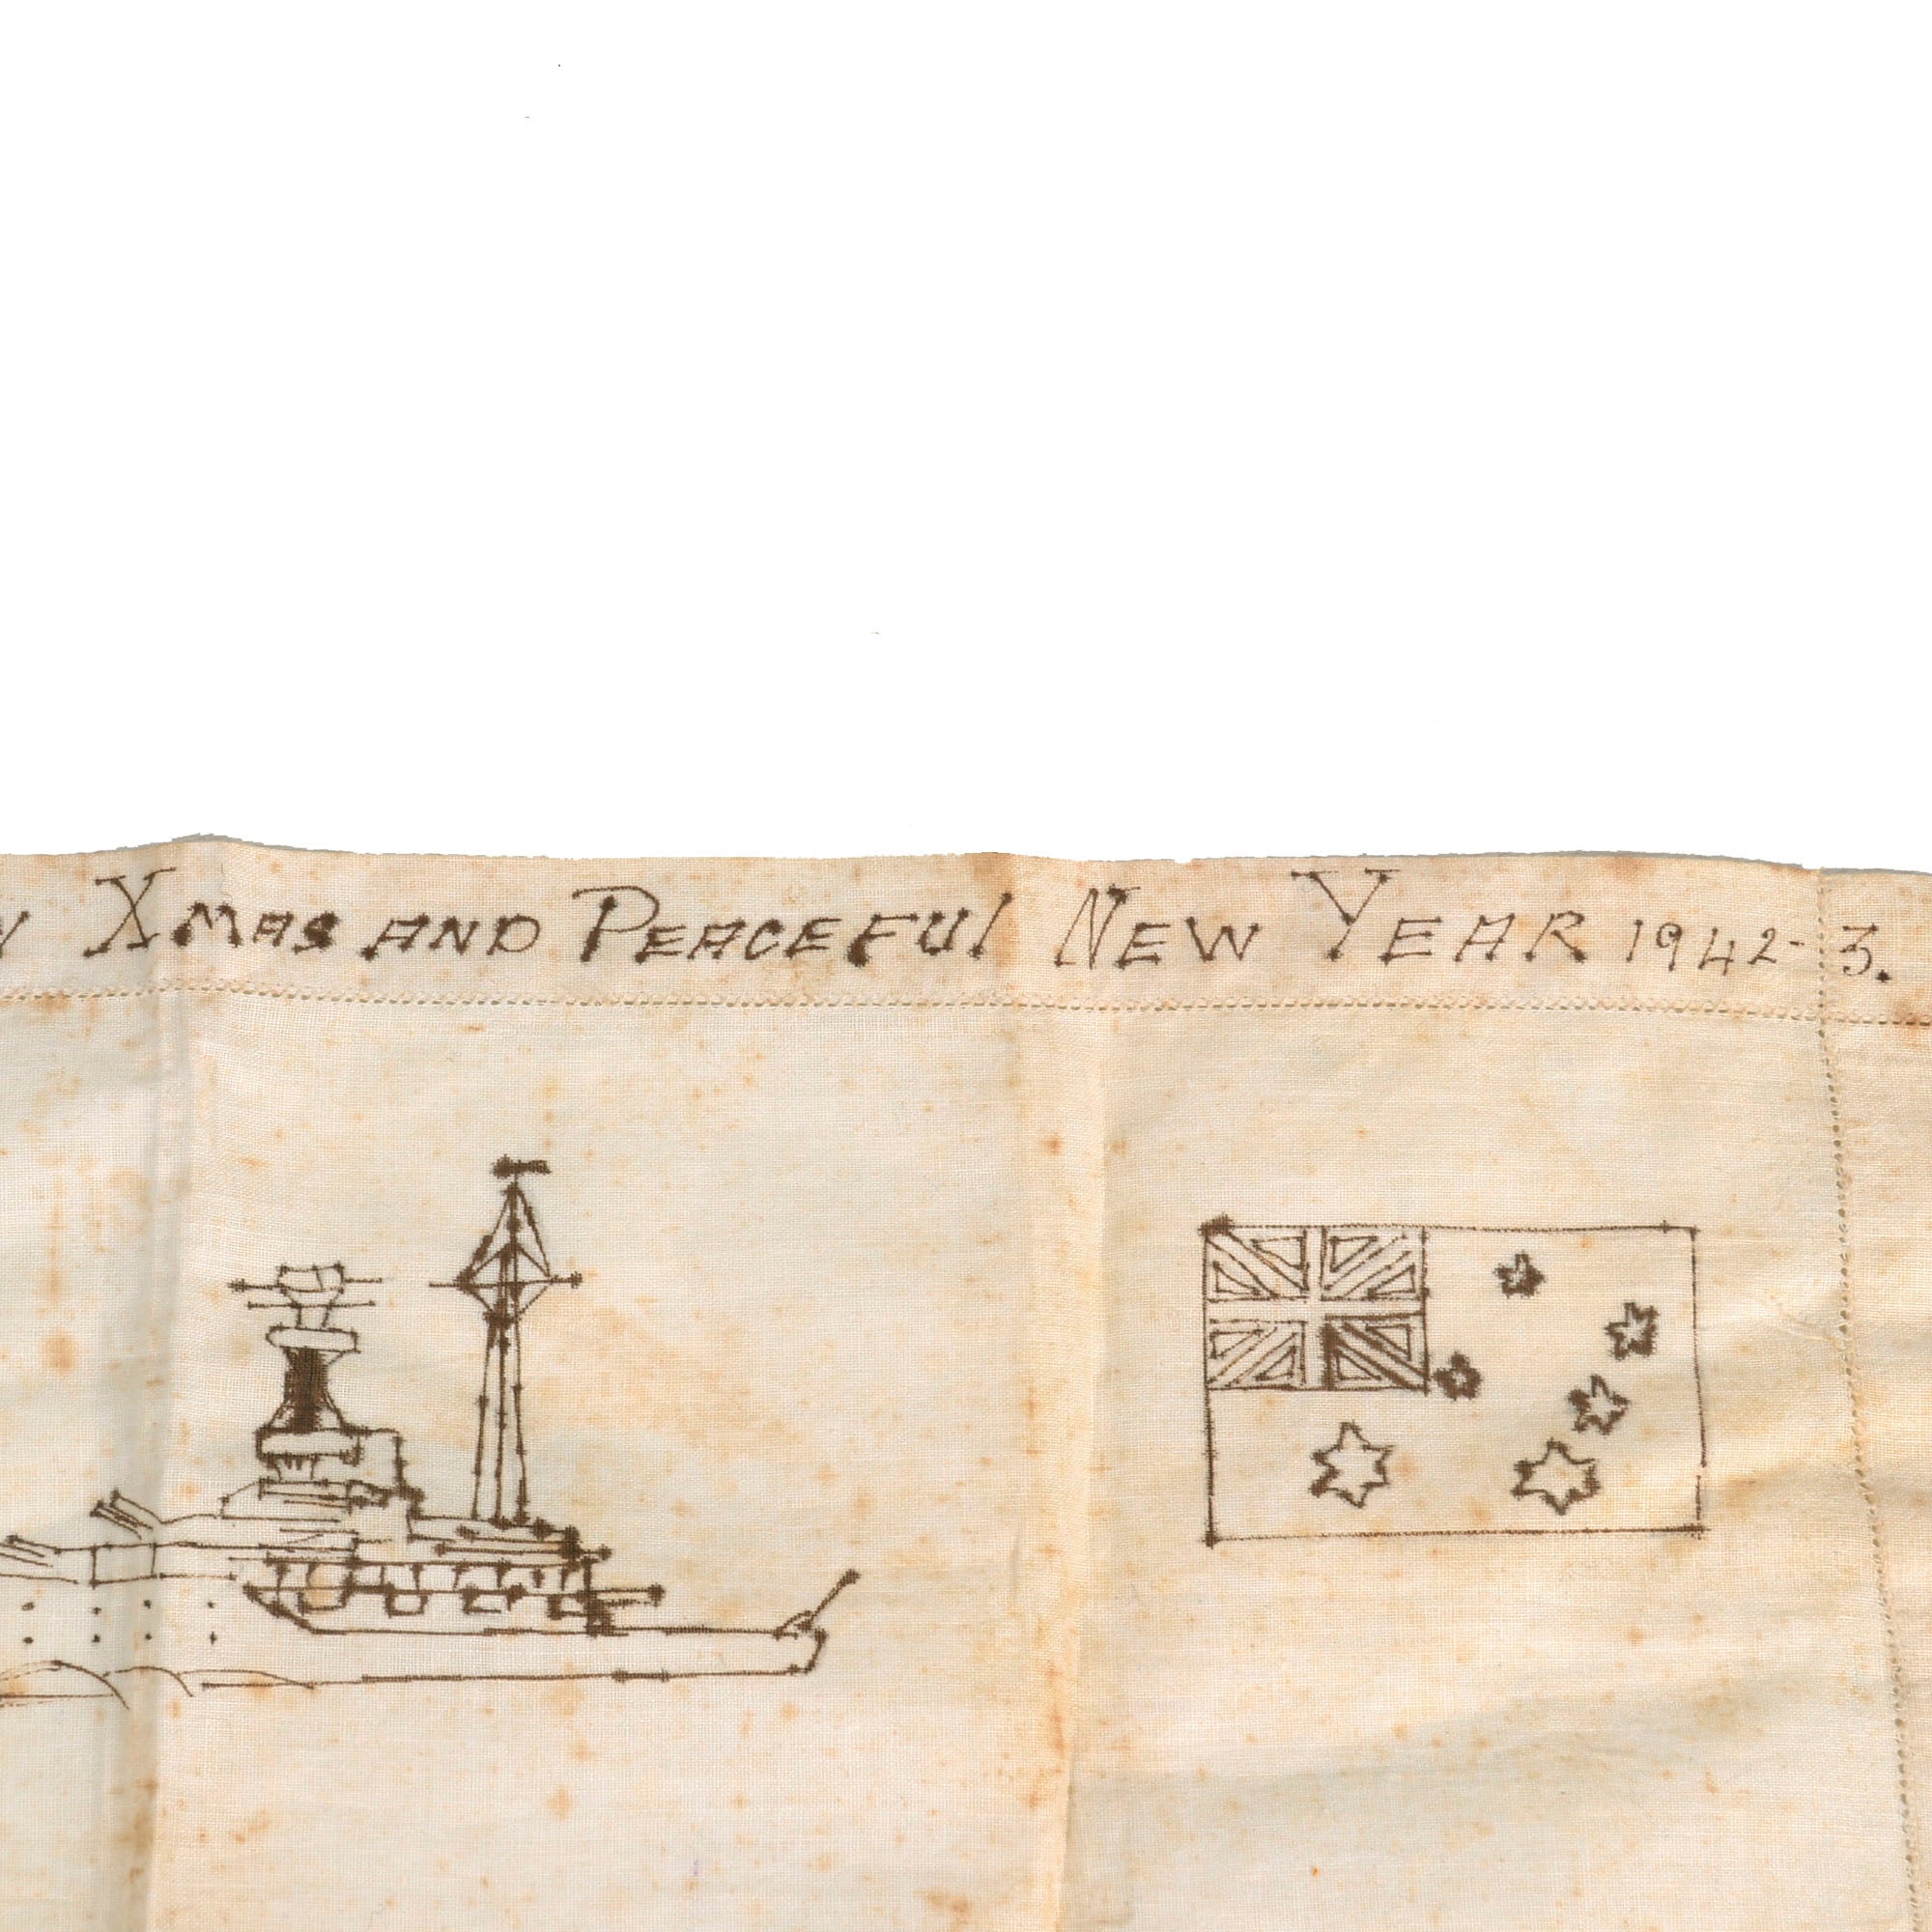 Y XMAS AND PEACEFUL NEW YEAR 1942-3.